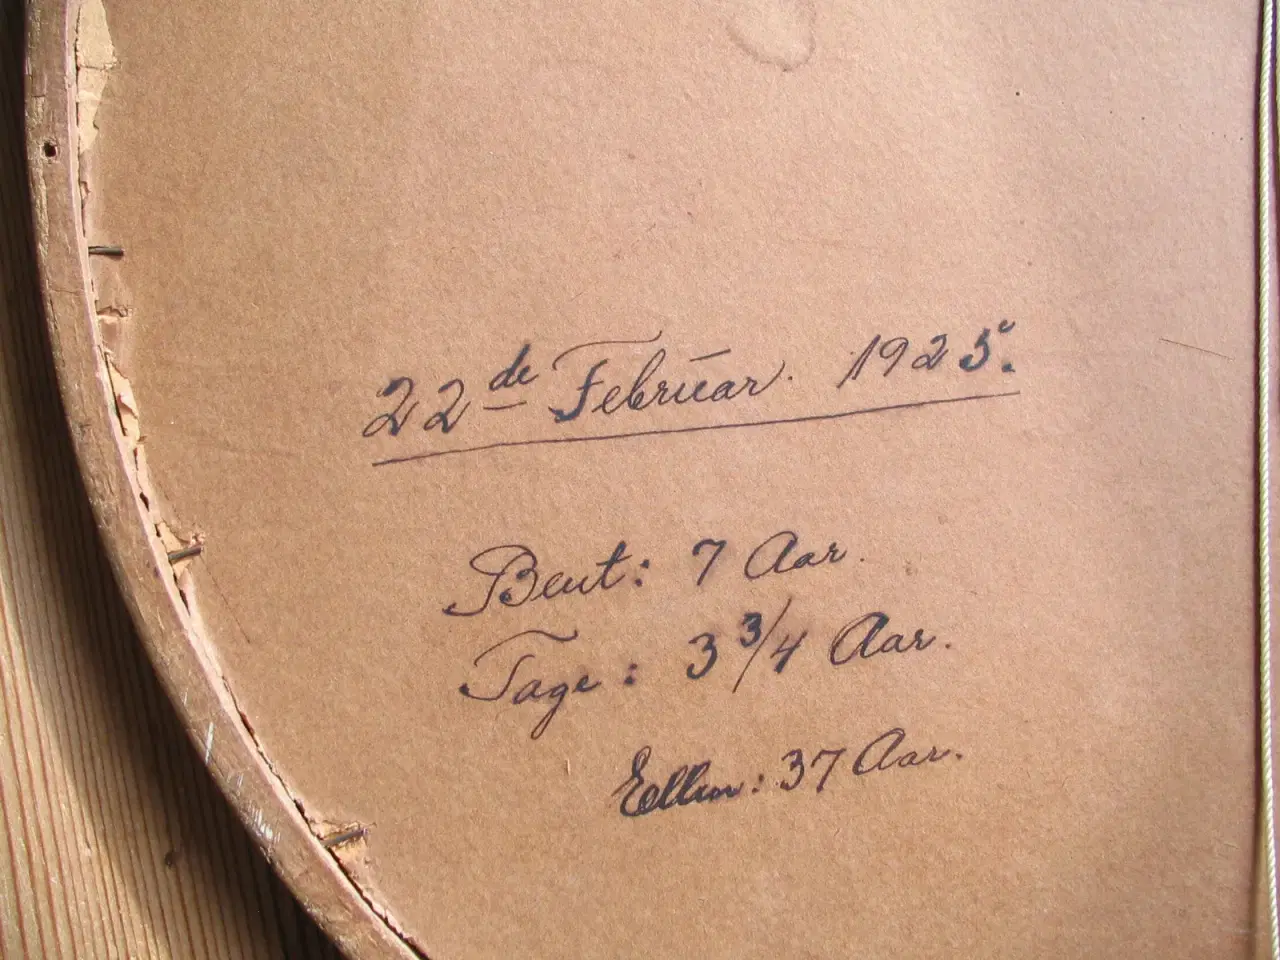 22de Februar. 1925.
Bent: 7 Aar.
Tage: 3 3/4 Aar.
Ellen: 37 Aar.